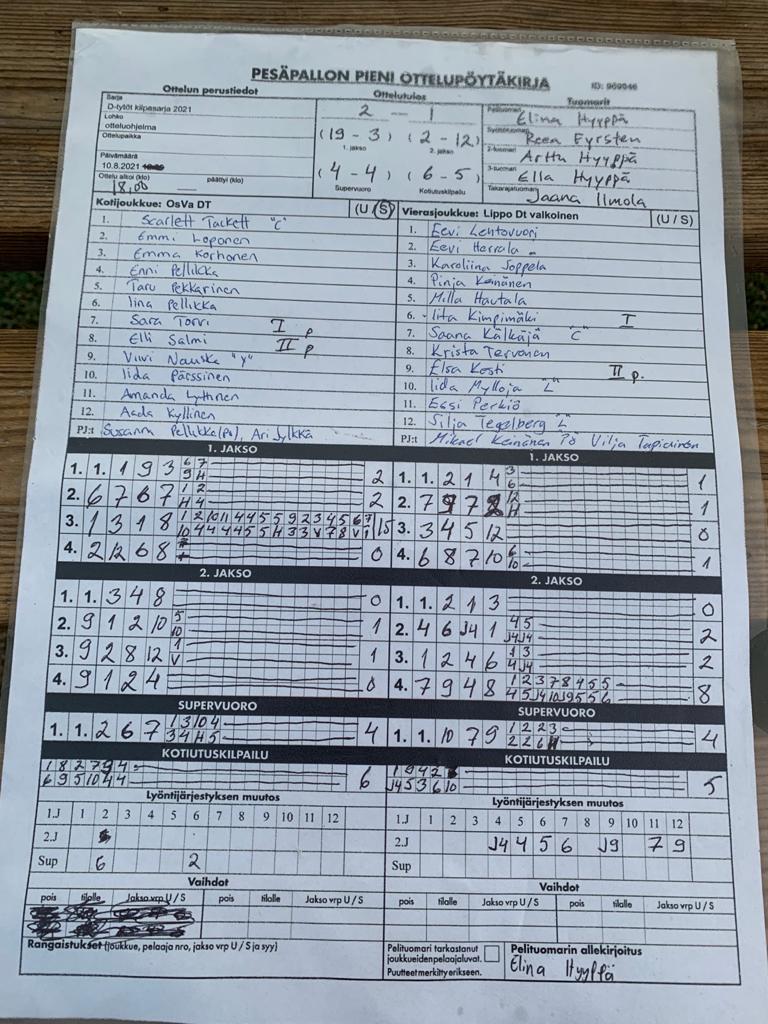 PESÄPALLON PIENI OTTELUPÖYTÄKIRJA
ID: 969946
Ottelun perustiedot
Sarja
D-tytöt kilpasarja 2021
Lohko
otteluohjelma
Ottelupaikka
Päivämäärä
10.8.2021
Ottelu alkoi (klo) päättyi (klo)
18,00
Ottelutulos
2 - 1
(19 - 3) (2 - 12)
1. jakso 2. jakso
(4 - 4) (6 - 5)
Supervuoro Kotiutuskilpailu
Tuomarit
Pelituomari
Elina Hyyppä
Syöttötuomari
Reea Fyrsten
2-tuomari
Arttu Hyyppä
3-tuomari
Ella Hyyppä
Takarajatuomari
Jaana Ilmola
Kotijoukkue: OsVa DT (U / S)
1. Scarlett Tackett "C"
2. Emmi Loponen
3. Emma Korhonen
4. Enni Pellikka
5. Taru Pekkarinen
6. Iina Pellikka
7. Sara Torvi I p
8. Elli Salmi II p
9. Viivi Nauska "Y"
10. Iida Pärssinen
11. Amanda Lyttinen
12. Aada Kyllinen
PJ:t Susanna Pellikka(PJ), Ari Jylkkä
Vierasjoukkue: Lippo Dt valkoinen (U / S)
1. Eevi Lehtovuori
2. Eevi Herrala
3. Karoliina Soppela
4. Pinja Keinänen
5. Milla Hautala
6. Iita Kimpimäki I
7. Saana Kälkäjä "C"
8. Krista Tervonen
9. Elsa Kosti II p.
10. Iida Mylloja "L"
11. Essi Perkiö
12. Silja Tegelberg "L"
PJ:t Mikael Keinänen PJ Vilja
1. JAKSO
1. 1. 1 9 3 6 7 2
9 H
2. 6 7 6 7 1 2 2
H 4
3. 1 3 1 8 1 2 10 11 4 4 5 5 9 2 3 4 5 6 7 15
4. 2 12 6 8 0
1. JAKSO
1. 1. 2 1 4 3 1
6
2. 7 9 7 1
3. 3 4 5 12 0
4. 6 8 7 10 6 1
10
2. JAKSO
1. 1. 3 4 8 0
2. 9 1 2 10 5 1
10
3. 9 2 8 12 1 1
V
4. 9 1 2 4 0
2. JAKSO
1. 1. 2 1 3 0
2. 4 6 J4 1 4 5 2
J4 J4
3. 1 2 4 6 1 3 2
4 J4
4. 7 9 4 8 1 2 3 7 8 4 5 5 8
4 5 J4 10 J9 5 5 6
SUPERVUORO
1. 1. 2 6 7 1 3 10 4 4
3 4 H 5
SUPERVUORO
1. 1. 10 7 9 1 2 2 3 4
2 2 6
KOTIUTUSKILPAILU
1 8 2 7 9 4 6
6 9 5 10 4 4
KOTIUTUSKILPAILU
1 9 4 2 5
J4 5 3 6 10
Lyöntijärjestyksen muutos
1.J 1 2 3 4 5 6 7 8 9 10 11 12
2.J
Sup 6 2
Lyöntijärjestyksen muutos
1.J 1 2 3 4 5 6 7 8 9 10 11 12
2.J J4 4 5 6 J9 7 9
Sup
Vaihdot
pois tilalle Jakso vrp U / S pois tilalle Jakso vrp U / S
Vaihdot
pois tilalle Jakso vrp U / S pois tilalle Jakso vrp U / S
Rangaistukset (joukkue, pelaaja nro, jakso vrp U / S ja syy)
Pelituomari tarkastanut
joukkueiden pelaajaluvat.
Puutteet merkitty erikseen.
Pelituomarin allekirjoitus
Elina Hyyppä